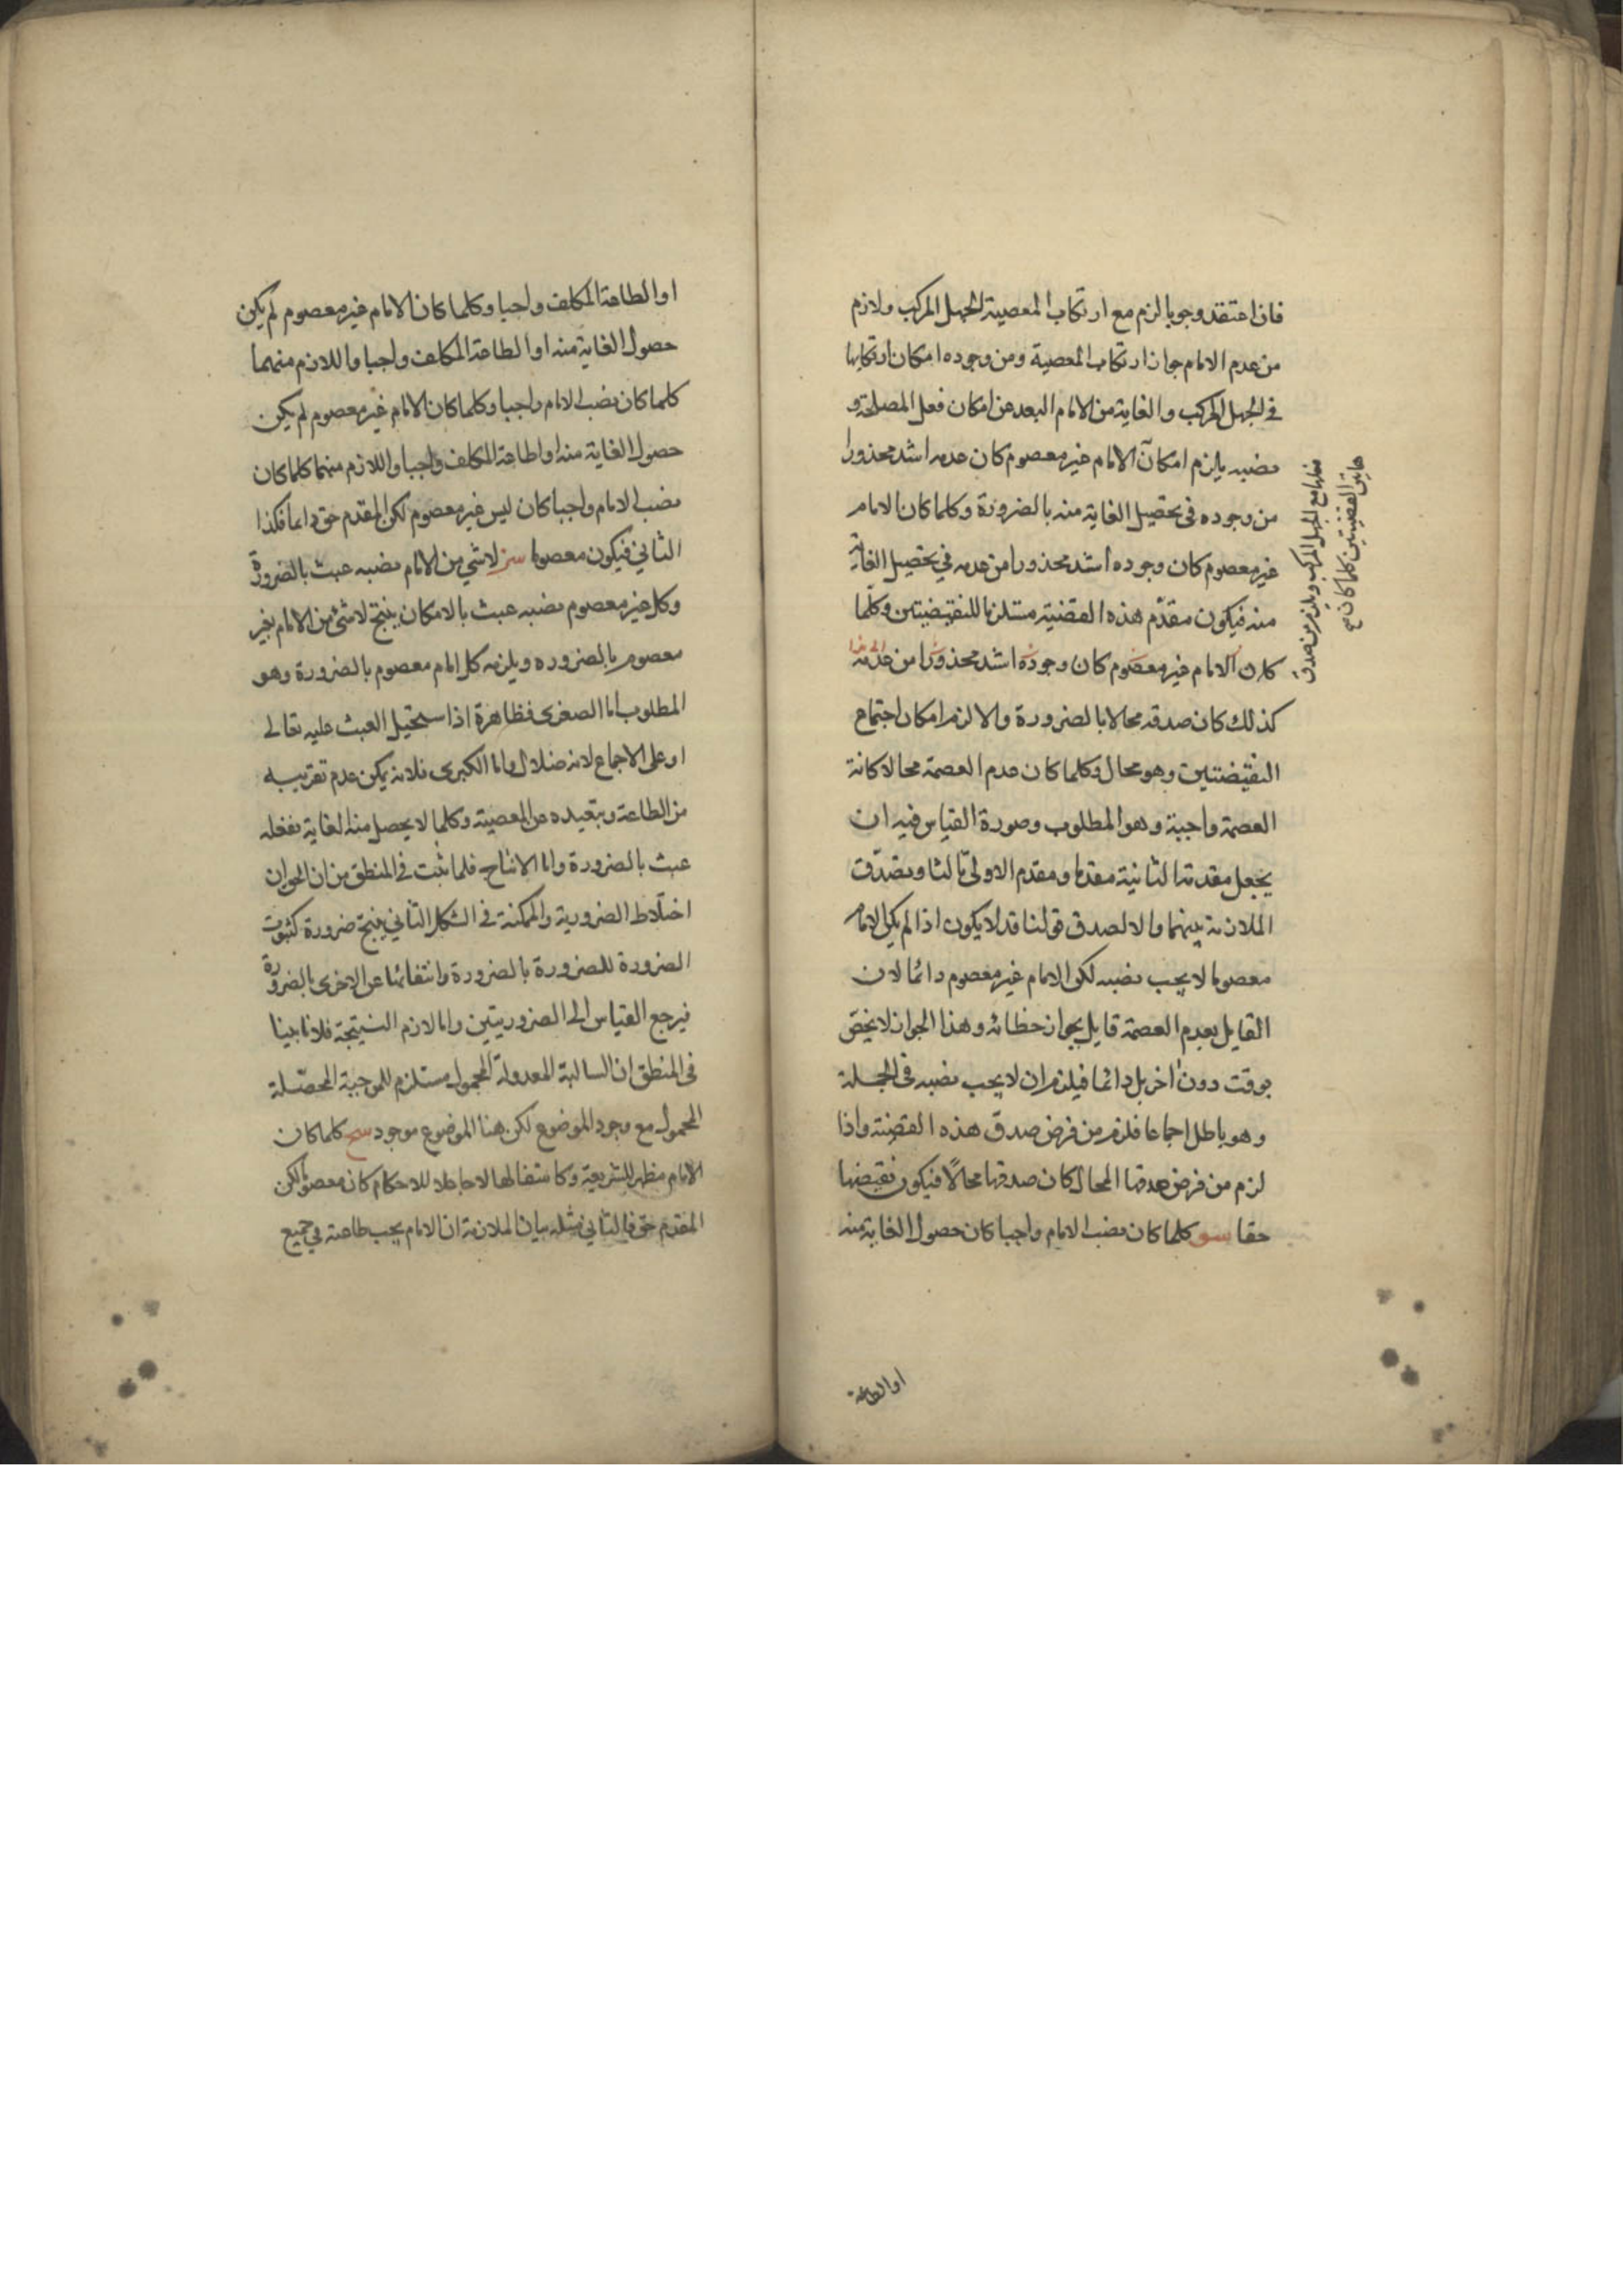 فان اعتقد وجوبا لزم مع ارتكاب المعصية الجهل المركب ولازم
من عدم الامام جواز ارتكاب المعصية ومن وجوده امكان ارتكابها
في الجهل المركب والغاية من الامام البعد عن امكان فعل المصلحة و
نصبه يلزم امكان الامام غير معصوم كان عدمه اشد محذورا
من وجوده في تحصيل الغاية منه بالضرورة وكلما كان الامام
غير معصوم كان وجوده اشد محذورا من عدمه في تحصيل الغاية
منه فيكون مقدم هذه القضية مستلزما للنقيضتين وكلما
كان الامام غير معصوم كان وجوده اشد محذورا من عدمه
كذلك كان صدقه محالا بالضرورة والا لزم امكان اجتماع
النقيضتين وهو محال وكلما كان عدم العصمة محالا كانة
العصمة واجبة وهو المطلوب وصورة القياس فيه ان
يجعل مقدمة الثانية مقدما ومقدم الاولى تالثا وتصدق
الملازمة بينهما والا لصدق قولنا قد لا يكون اذا لم يكن الامام
معصوما لا يجب نصبه لكن الامام غير معصوم دائما لان
القايل بعدم العصمة قايل بجواز خطائه وهذا الجواز لا يختص
بوقت دون اخر بل دائما فيلزم ان لا يجب نصبه في الجملة
وهو باطل اجماعا فلزم من فرض صدق هذه القضية واذا
لزم من فرض صدقها المحال كان صدقها محالا فيكون نقيضها
حقا سو كلما كان نصب الامام واجبا كان حصول الغاية منه
او الطاعة
مع الجهل المركب ويلزم من صدق
هاتين القضيتين كلما كان
او الطاعة المكلف واجبا وكلما كان الامام غير معصوم لم يكن
حصول الغاية منه او الطاعة المكلف واجبا واللازم منهما
كلما كان نصب الامام واجبا وكلما كان الامام غير معصوم لم يكن
حصول الغاية منه او اطاعة المكلف واجبا واللازم منهما كلما كان
نصب الامام واجبا كان ليس غير معصوم لكن المقدم حق دائما فكذا
الثاني فيكون معصوما سز لا شي من الامام نصبه عبث بالضرورة
وكل غير معصوم نصبه عبث بالامكان ينتج لا شئ من الامام بغير
معصوم بالضروره ويلزمه كل امام معصوم بالضرورة وهو
المطلوب اما الصغرى فظاهرة اذا ستحيل العبث عليه تعالى
او على الاجماع لانه ضلال واما الكبرى فلانه يمكن عدم تقريبه
من الطاعة وتبعيده عن المعصية وكلما لا يحصل منه الغاية ففعله
عبث بالضرورة واما الانتاج فلما ثبت في المنطق من ان الجواز
اختلاط الضرورية والممكنة في الشكل الثاني ينتج ضرورة كثبوت
الضرورة للضرورة بالضرورة وانتفائها عن الاخرى بالضرورة
فيرجع القياس الى الضروريتين واما لازم النتيجة فلانا بينا
في المنطق ان السالبة المعدولة المحمول مستلزم للموجبة المحصلة
المحمول مع وجود الموضوع لكن هنا الموضوع موجود سح كلما كان
الامام مظهر للشريعة وكاشفا لها لا جاعلا للاحكام كان معصوما لكن
المقدم حق فالتالي مثله بيان الملازمة ان الامام يجب طاعته في جميع